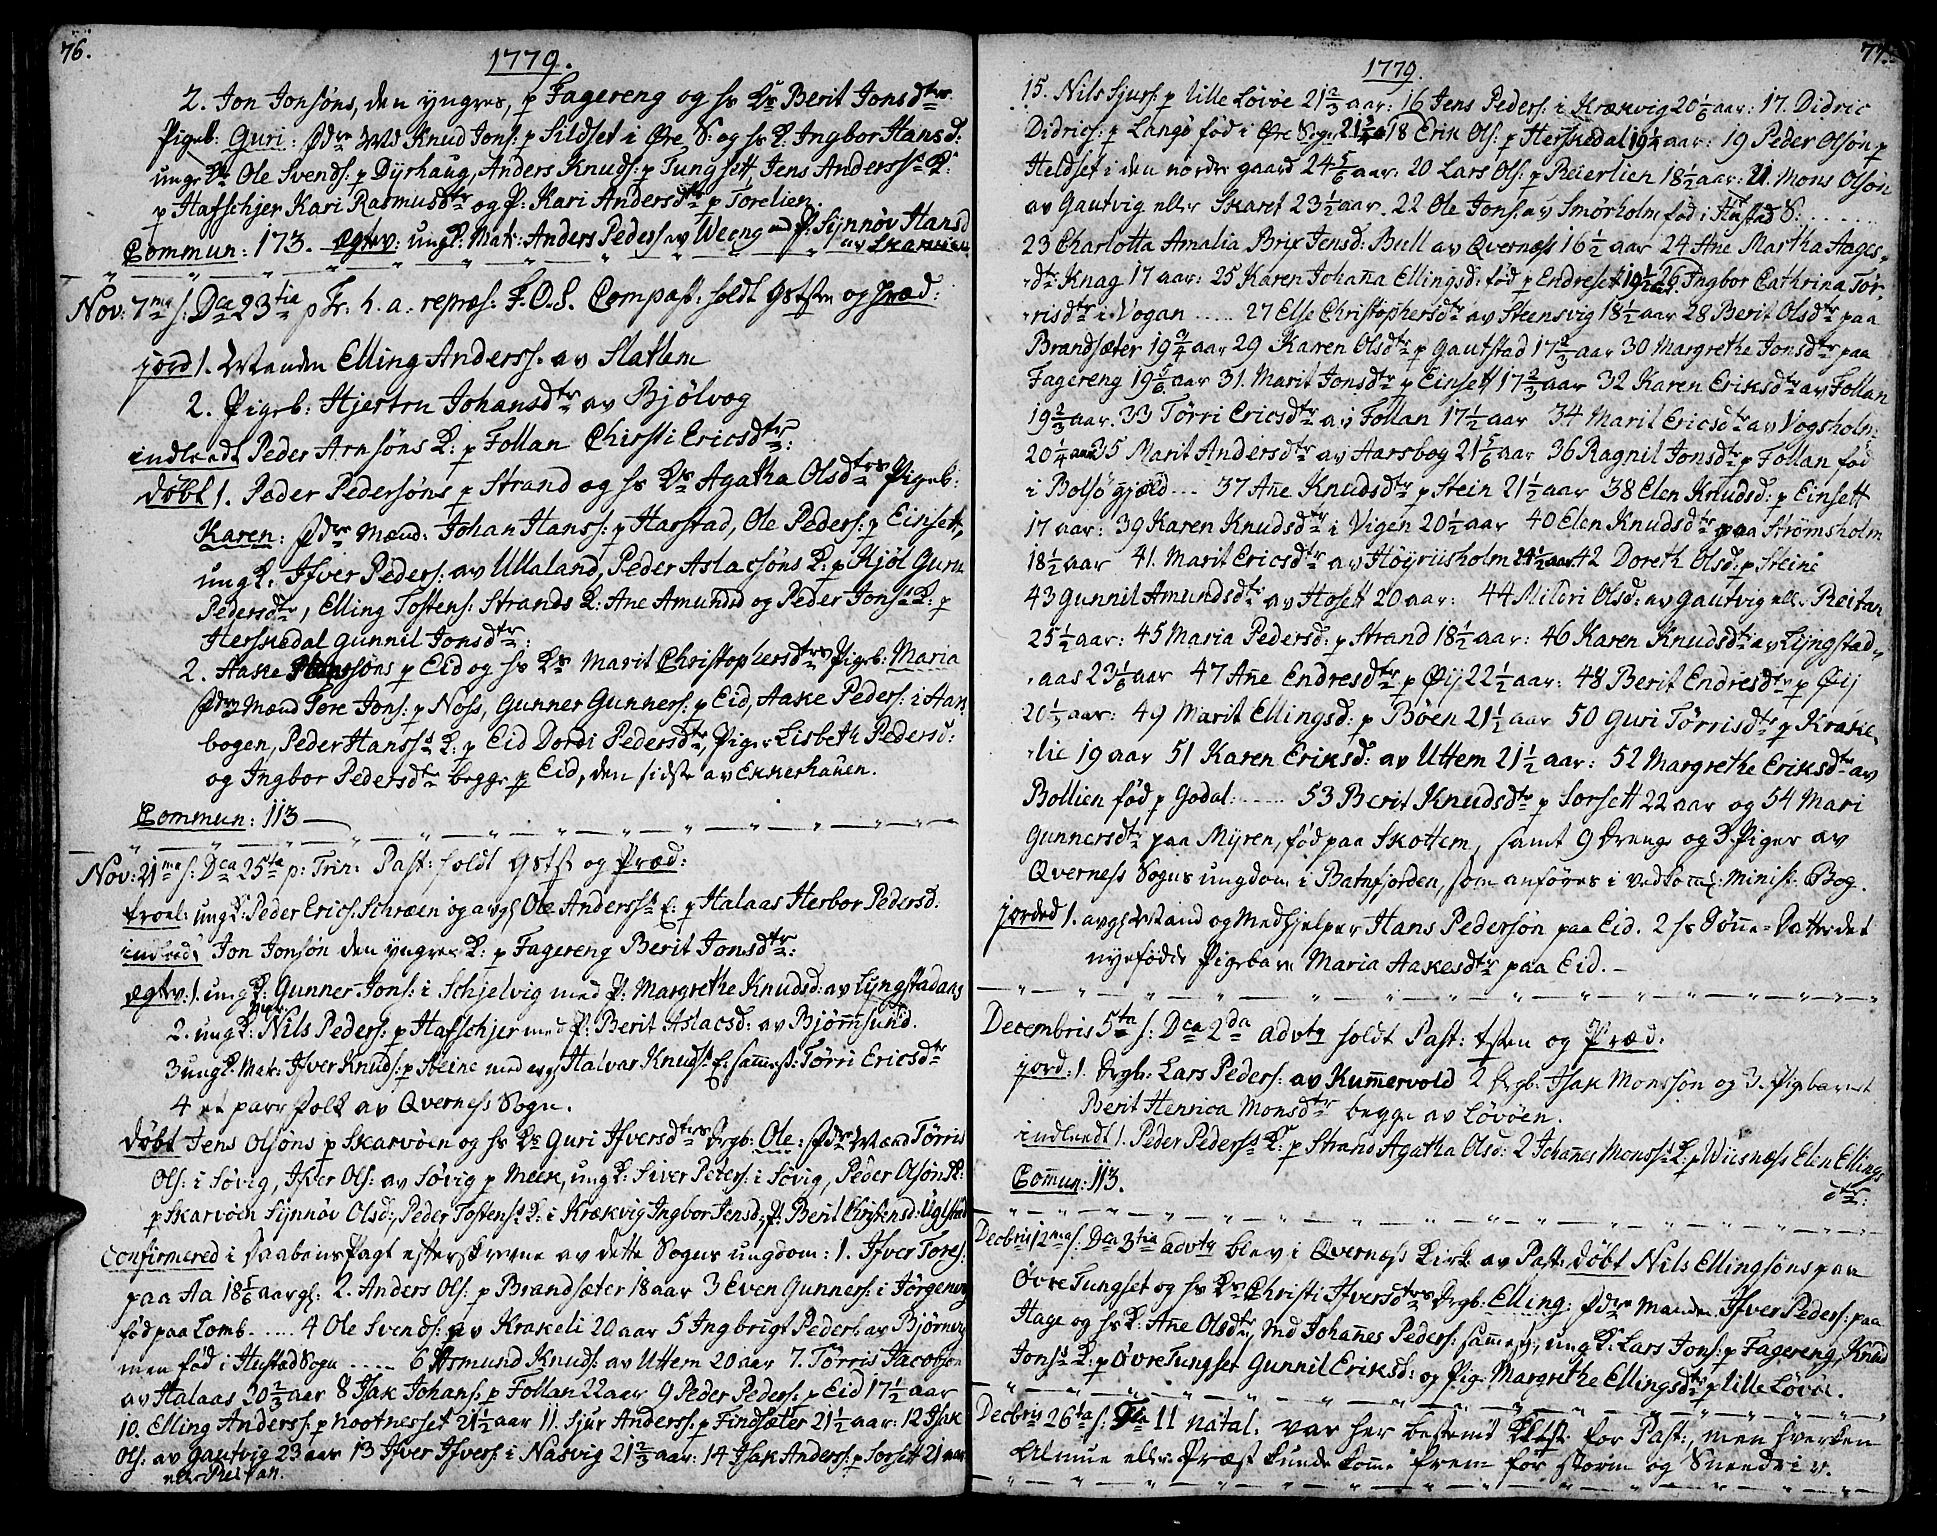 76.
1779.
2. Jon Jonsøns, den yngres, p Fagereng og hs Ks Berit Jonsdtrs
Pigeb: Guri: fdre Md Knud Jons: p Sildset i Øre S: og hs K Ingbor Hansd:
ungeKr Ole Svends: p Dyrhaug, Anders Knuds: p Tungsett, Jens Anderss K:
p Hafschjer Kari Rasmusdtr og P: Kari Andersdtr p Torelien.
Commun: 173. Ægtev: ungK: Mat: Anders Peders av Weeng med P: Synnøv Hansd
av Skarvien
Nov: 7ma s: Dca 23tia p Tr. h. a. repræs: F.O.S. Comp Past: holdt Gstsn og Præd:
jord 1. Manden Elling Anderss. av Slatlem
2. Pigeb: Hjestru Johansdtr av Bjølvog
indleedt Peder Arnsøns K: p Follan Chirsti Ericsdtr:
døbt 1. Peder Pedersøns p Strand og hs Ks Agatha Olsdtrs Pigeb:
Karen: fdre Mænd: Johan Hanss: p Harstad, Ole Peders: p Einsett,
ungK. Ifver Peders: av Ullaland, Peder Aslacsøns K: p Kjøl Guru
Pedersdtr, Elling Tostens: Strands K: Ane Amundsd og Peder Jonss K: p
Herskedal Gunnil Jonsdtr:
2. Aake Hanssøns p Eid og hs Ks Marit Christophersdtrs Pigeb: Maria
fdre Mænd Tore Jons: p Noss, Gunner Gunners: p Eid, Aake Peders: i Aan
bogen, Peder Hanss K: p Eid Dordi Pedersdtr, Piger Lisbeth Pedersd:
og Ingbor Pedersdtr begge p Eid, den sidste av Ekkerhauen.
Commun: 113
Nov: 21ma s: Dca 25ta p: Trin: Past: holdt Gstst og Præd:
troel: ungK: Peder Erics: Schræen og avgs Ole Anderss E: p Halaas Herbor Pedersd:
indleedt Jon Jonsøn den yngres K: p Fagereng Berit Jonsdtr:
Ægtev: 1. ungK: Gunner Jons: i Schjelvig med P: Margrethe Knudsd: av Lyngstadaas
2. ungK: Nils Peders: p Hafschjer med P: Berit Aslacsd: av Bjørnsund.
3 ungK. Mat: Ifver Knuds: p Steine med avgs Halvar Knuds E: sammest: Tørri Ericsdtr
4 et parr folk av Qverness Sogn.
døbt Jens Olsøns p Skarvøen og hs Ks Guri Ifversdtrs Drgb: Ole: fdre Mænd Tørris
Ols: i Søvig, Ifver Ols: av Søvig p Meek, ungK: Siver Peters: i Søvig, Peder Olsøns K:
p Skarvøen Synnøv Olsd:, Peder Tostenss K: i Krækvig Ingbor Jensd:, P: Berit Christensd: Uglhuus
Confirmered i Daabens Pagt efterskrevne av dette Sogns ungdom: 1. Ifver Tores:
paa Aa 18 5/6 aar gl: 2. Anders Ols: p Brandsæter 18 aar 3 Even Gunners: i Jørgenvog
fød paa Lomb. ..... 4 Ole Svends: av Krakeli 20 aar 5 Ingbrigt Peders: av Bjørnevog
men fød i Hustad Sogn ..... 6 Asmund Knuds: av Uttem 20 aar 7. Tørris Jacobsøn
av Halaas 20 2/3 aar 8 Isak Johans: p Follan 22 aar 9 Peder Peders: p Eid 17 1/2 aar
10. Elling Anderss: p Nootnesset 21 1/2 aar 11. Sjur Anderss: p Findsæter 21 1/2 aar: 12 Isak
Ols: av Gautvig 23 aar 13 Ifver Ifvers: i Nasvig 21 2/3 aar: 14 Isak Anders: p Sorsett 21 aar
eller Reitan.
77.
1779.
15. Nils Sjurs: p lille Løvøe 21 2/3 aar: 16 Jens Peders: i Krækvig 20 1/6 aar: 17. Didric
Didrics: p Langø fød i Øre Sogn 21 18 Erik Ols: p Herskedal 19 1/4 aar: 19 Peder Olsøn p
Heldset i den nordre gaard 24 5/6 aar: 20 Lars Ols: p Beierlien 18 1/2 aar: 21. Mons Olsøn
av Gautvig eller Skaret 23 1/2 aar. 22 Ole Jons: av Smørholm fød i Hustad S: ......
23 Charlotta Amalia Brix Jensd: Bull av Qverness 16 1/2 aar 24 Ane Martha Aages-
-dtr Knag 17 aar: 25 Karen Johaña Ellingsd: fød p Endreset 19 1/2 26 Ingbor Cathrina Tør-
-risdtr i Vogan ..... 27 Else Christophersdtr av Steensvig 18 1/2 aar 28 Berit Olsdtr paa
Brandsæter 19 3/4 aar 29 Karen Olsdtr p Gautstad 17 2/3 aar 30 Margrethe Jonsdtr paa
Fagereng 19 5/6 aar 31. Marit Jonsdtr p Einsett 17 2/3 aar 32 Karen Eriksdtr av Follan
19 2/3 aar. 33 Tørri Ericsdtr av Follan 17 1/2 aar 34 Marit Ericsdtr av Vogsholm
20 1/4 aar 35 Marit Andersdtr av Aarsbog 21 5/6 aar 36 Ragnil Jonsdtr p Follan fød
i Bolsøgjæld ... 37 Añe Knudsdtr p Stein 21 1/2 aar 38 Elen Knudsd: p Einsett
17 aar: 39 Karen Knudsdtr i Vigen 20 1/2 aar 40 Elen Knudsdtr paa Strømsholm
18 1/2 aar 41. Marit Ericsdtr av Høyriisholm 24 1/2 aar 42 Doreth Olsd: p Steine
43 Gunnil Amundsdtr av Hosett 20 aar: 44 Mildri Olsd: av Gautvig ell. Reitan
25 1/2 aar: 45 Maria Pedersd: p Strand 18 1/2 aar: 46 Karen Knudsdtr av Lyngstad-
-aas 23 1/6 aar 47 Añe Endresdtr p Øij 22 1/2 aar: 48 Berit Endresdtr p Øij
20 1/3 aar: 49 Marit Ellingsd: p Bøen 21 1/2 aar 50 Guri Tørrisdtr p Krake-
-lie 19 aar 51 Karen Eriksd: av Uttem 21 1/2 aar: 52 Margrethe Eriksdtr av
Bollien fød p Godal: ..... 53 Berit Knudsdtr p Sorsett 22 aar og 54 Mari
Gunnersdtr paa Myren, fød paa Skottem, samt 9 Drenge og 3 Piger av
Qverness Sogns ungdom i Batnfjorden, som anføres i vedkom: Minist. Bog.
jorded 1. avgs Mand og Medhjelper Hans Pedersøn paa Eid. 2 hs Sønne-Datter det
nyefødde Pigebarn Maria Aakesdtr paa Eid. -
Decembris 5ta s: Dca 2da advts holdt Past: Tsten og Præd:
jord: 1. Drgb: Lars Peders: av Kummervold 2 Drgb: Isak Monssøn og 3. Pigebarnet
Berit Henrica Monsdtr begge av Løvøen.
indleedt 1. Peder Pederss K: p Strand Agatha Olsd: 2 Johañes Monss K: p Wiisness Elen Ellings
dtr:
Comun: 113.
Decbris 12ma s: Dca 3tia advts blev i Qverness Kirk av Past: døbt Nils Ellingsøns paa
Øvre Tungset og hs Ks Christi Ifversdtrs Drgb: Elling: fdre Manden Ifver Peders: paa
Hage og hs K: Añe Olsdtr, Md Johañes Peders: sammest:, ungK: Lars Jons: p Fagereng, Knud
Jonss K: p Øvre Tungset Gunnil Eriksd: og Pig. Margrethe Ellingsdtr p lille Løvøe.
Decbris 26ta s: Fia 11 natal. var her bestemt Gtst. for Past:, men hverken
Almue eller Præst kunde komme frem for storm og Sneedriv.